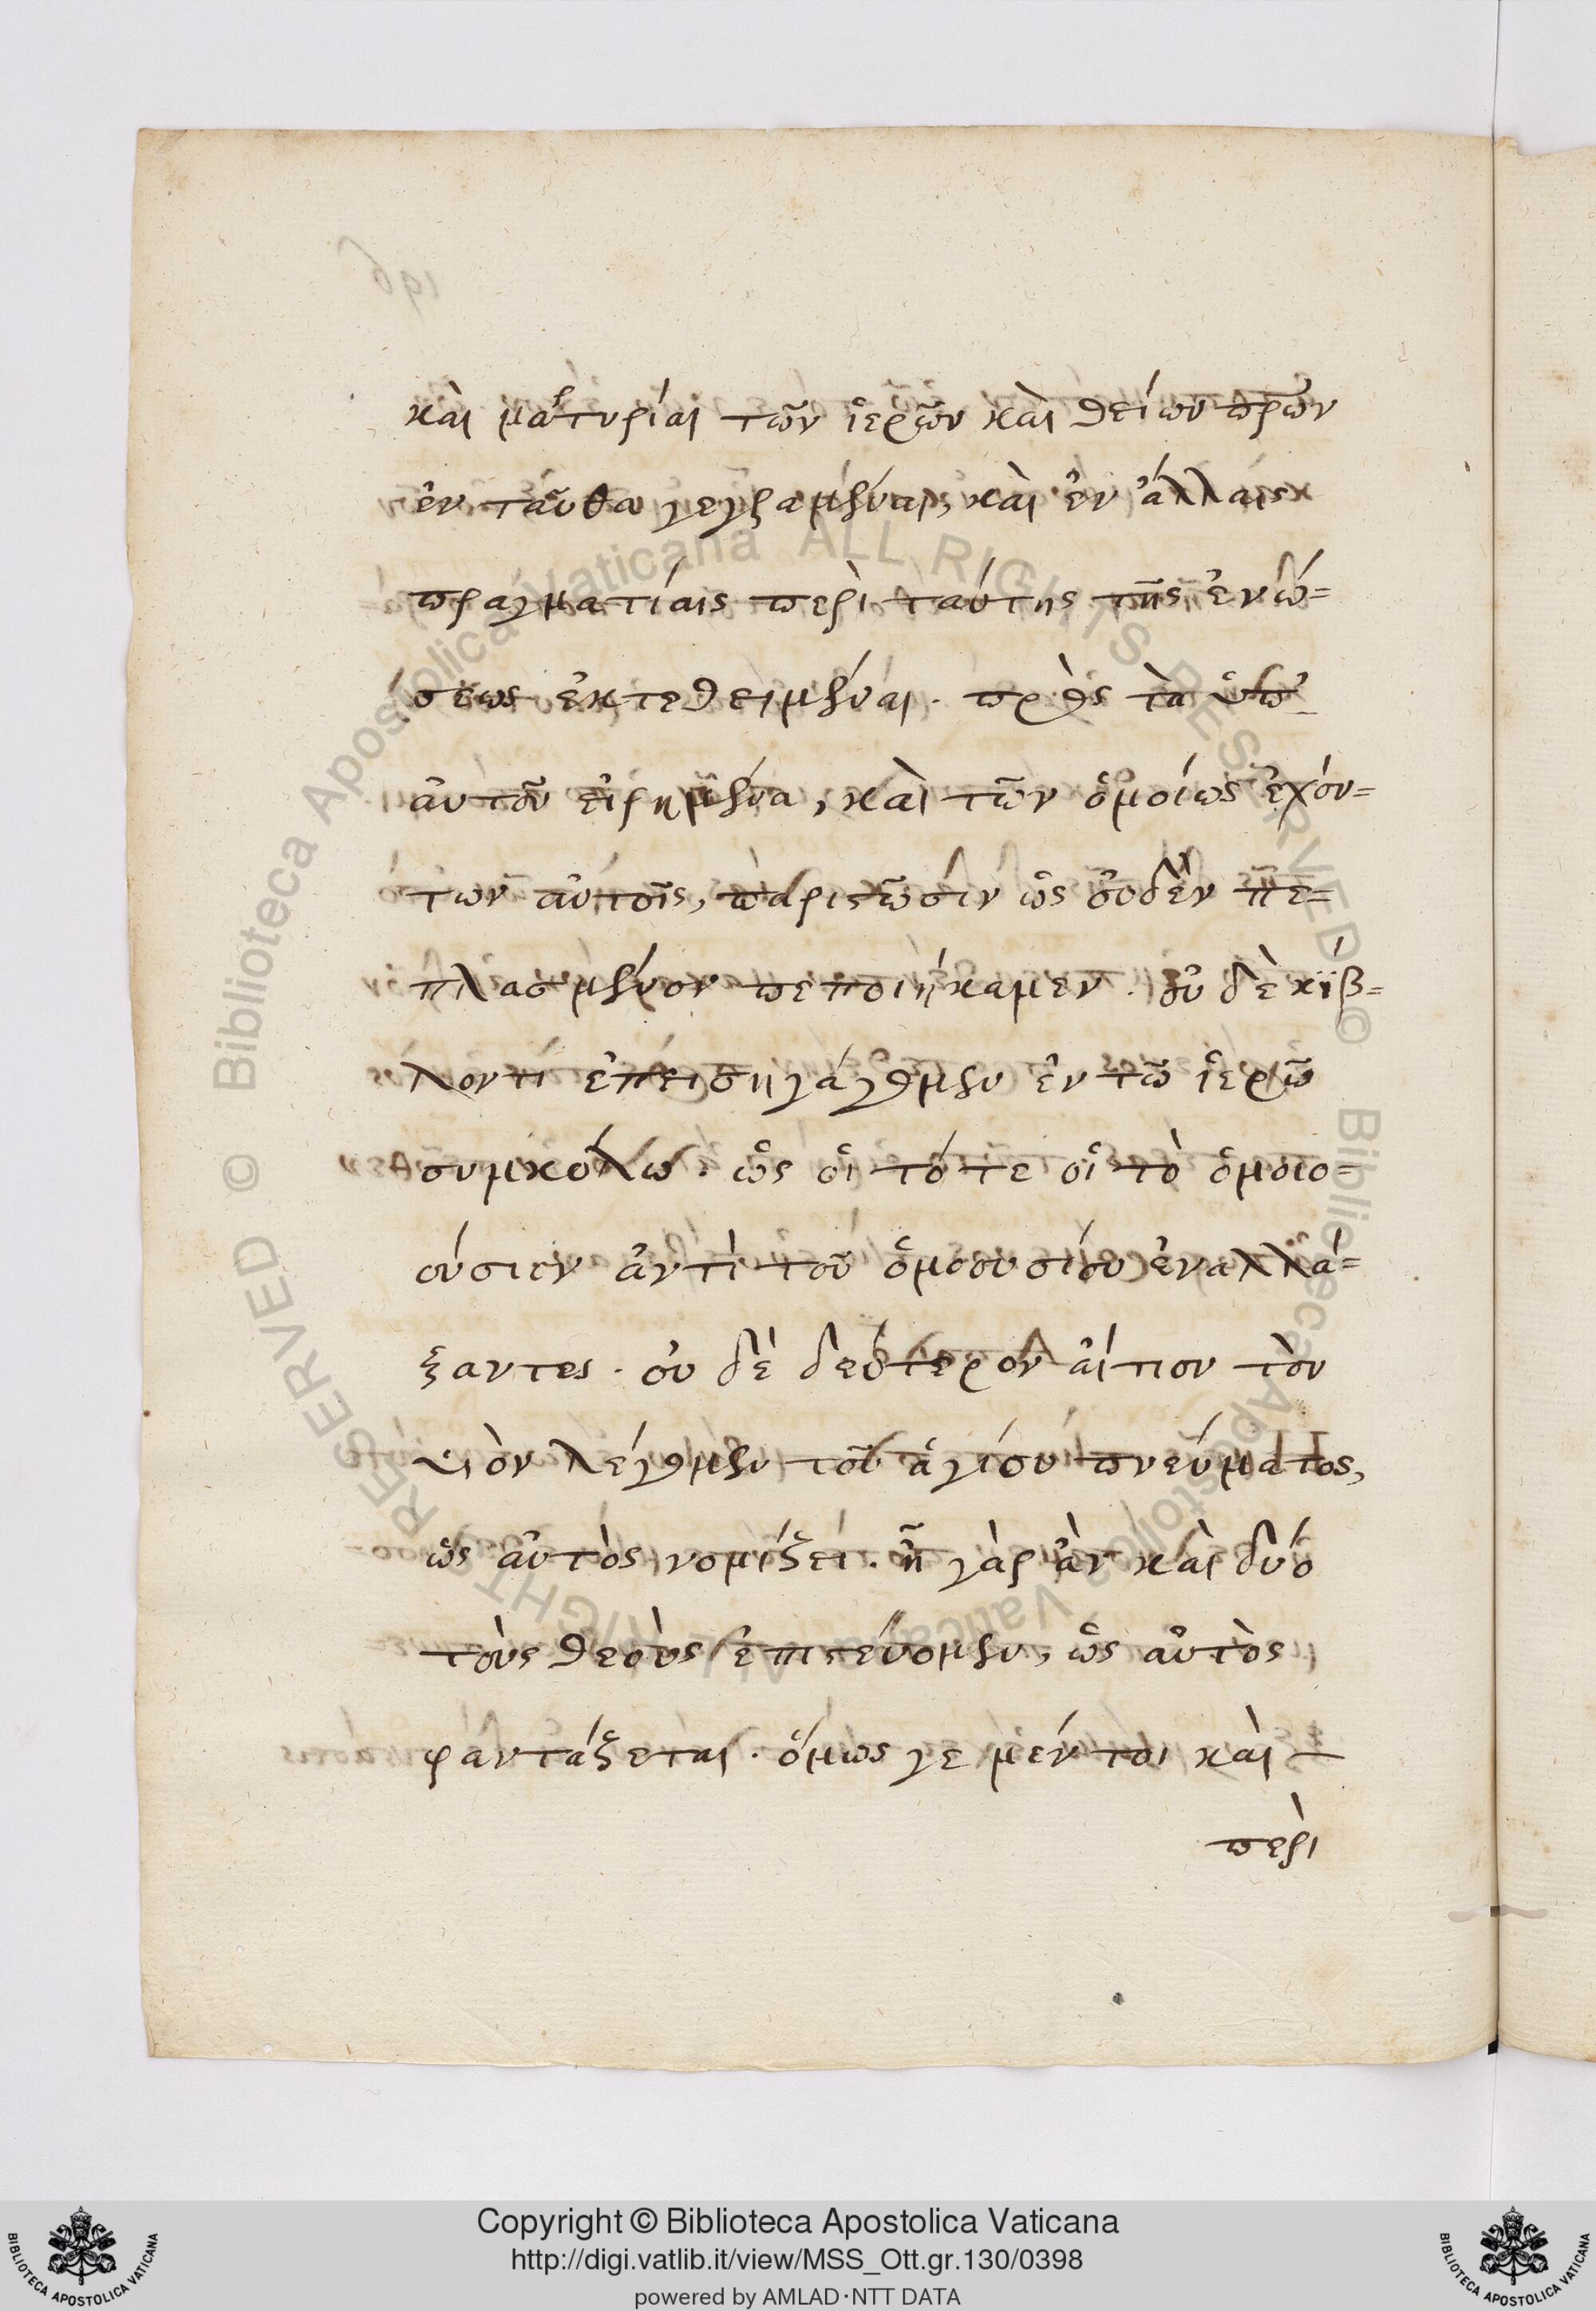 καὶ μαρτυρίαι τῶν ἱερῶν καὶ θείων πρων
ἐνταῦθα γεγραμμέναι, καὶ ἐν ἄλλαις
πραγματίαις περὶ ταύτης τῆς ἑνώ=
σεως ἐκτεθειμέναι. πρὸς τὰ ὑπ'
αὐτοῦ εἰρημένα, καὶ τῶν ὁμοίως ἐχόν=
των αὐτοῖς, παριστῶσιν ὡς οὐδὲν πε=
πλασμένον πεποιήκαμεν. οὐδὲ κίβ=
λον τι ἐπεισηγάγομεν ἐν τῶ ἱερῶ
συμβόλω. ὡς οἱ τότε οἱ τὸ ὁμοιο=
ούσιον ἀντὶ τοῦ ὁμοουσίου ἐναλλά=
ξαντες. οὐδὲ δεύτερον αἴτιον τὸν
υἱὸν λέγομεν τοῦ ἁγίου πνεύματος,
ὡς αὐτὸς νομίζει. ἦ γὰρ ἂν καὶ δύο
τοὺς θεοὺς ἐπιστεύομεν, ὡς αὐτὸς
φαντάζεται. ὅμως γε μέντοι καὶ
περὶ
196
© Biblioteca Apostolica Vaticana ALL RIGHTS RESERVED
© Biblioteca Apostolica Vaticana ALL RIGHTS RESERVED
Copyright © Biblioteca Apostolica Vaticana
http://digi.vatlib.it/view/MSS_Ott.gr.130/0398
powered by AMLAD·NTT DATA
BIBLIOTECA APOSTOLICA VATICANA
BIBLIOTECA APOSTOLICA VATICANA